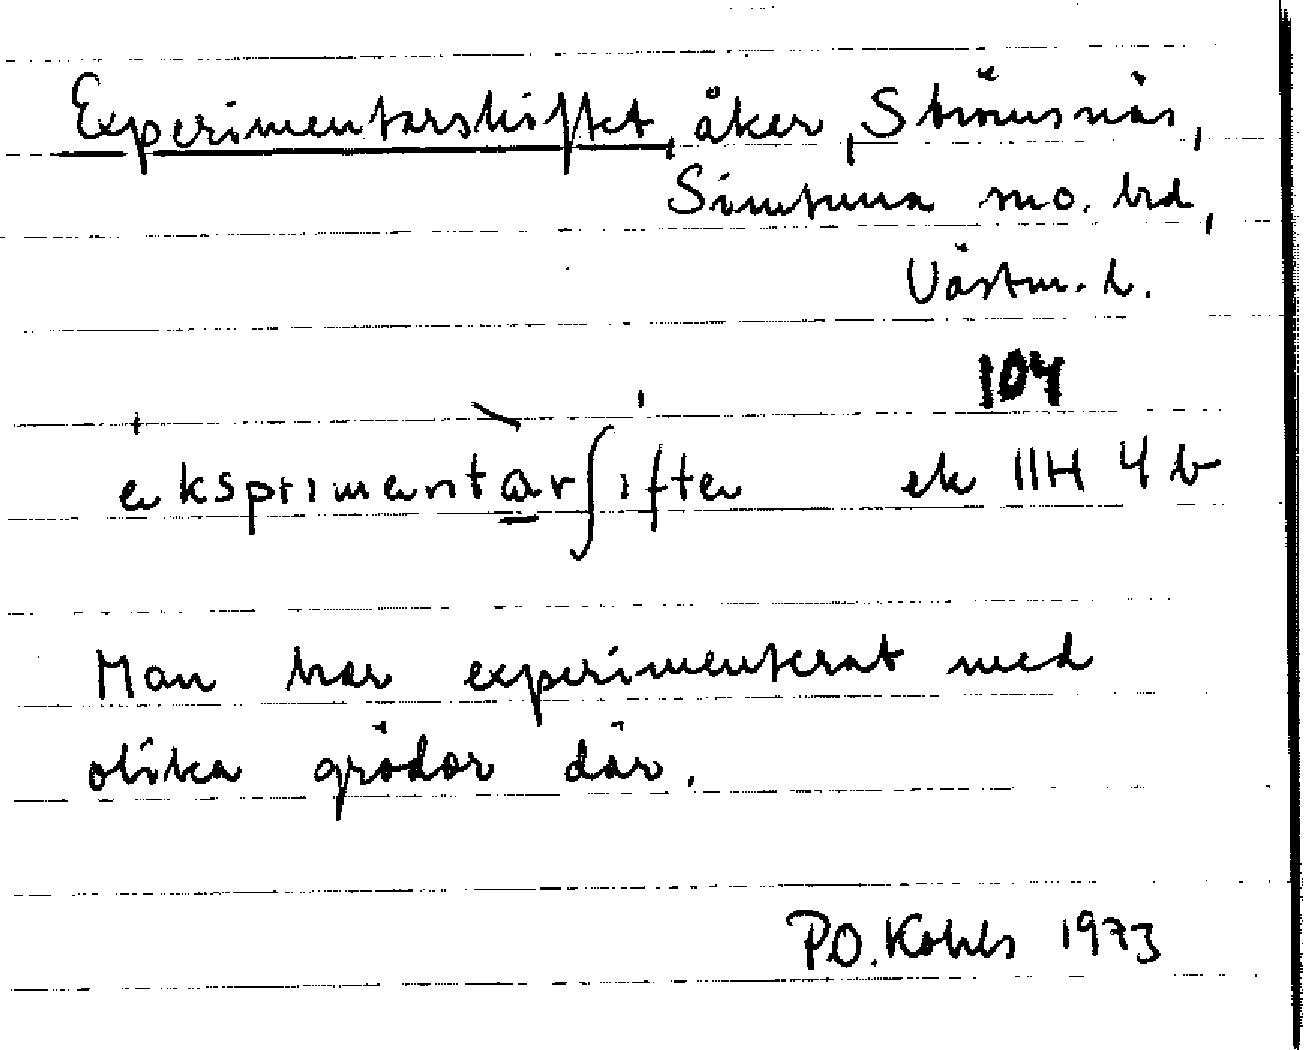 Experimentarskiftet, åker, Strömsnäs,
Simtuna sno. hrd,
Västm. l.
104
eksprimentarʃiften ek 11H 4 b
Man har experimenterat med
olika grödor där.
P.O. Kohls 1973